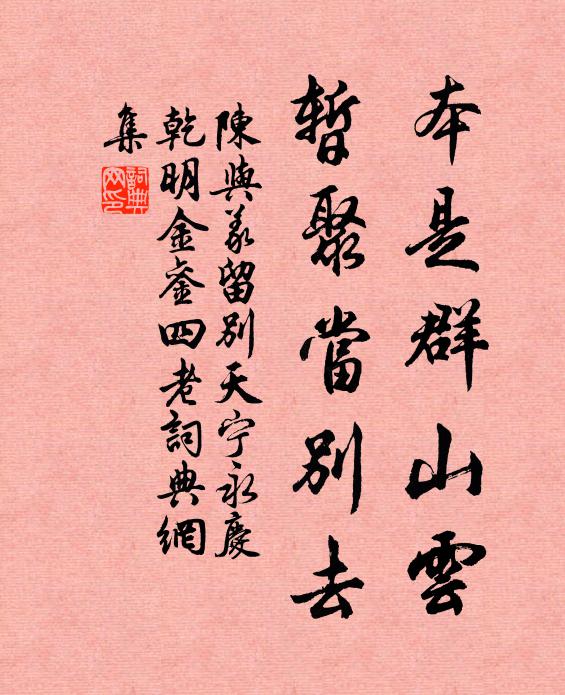 本是群山雲
暫聚當別去
陳與義留別天寧永慶
乾明金鑾四老詞典網
集
詞典
网印